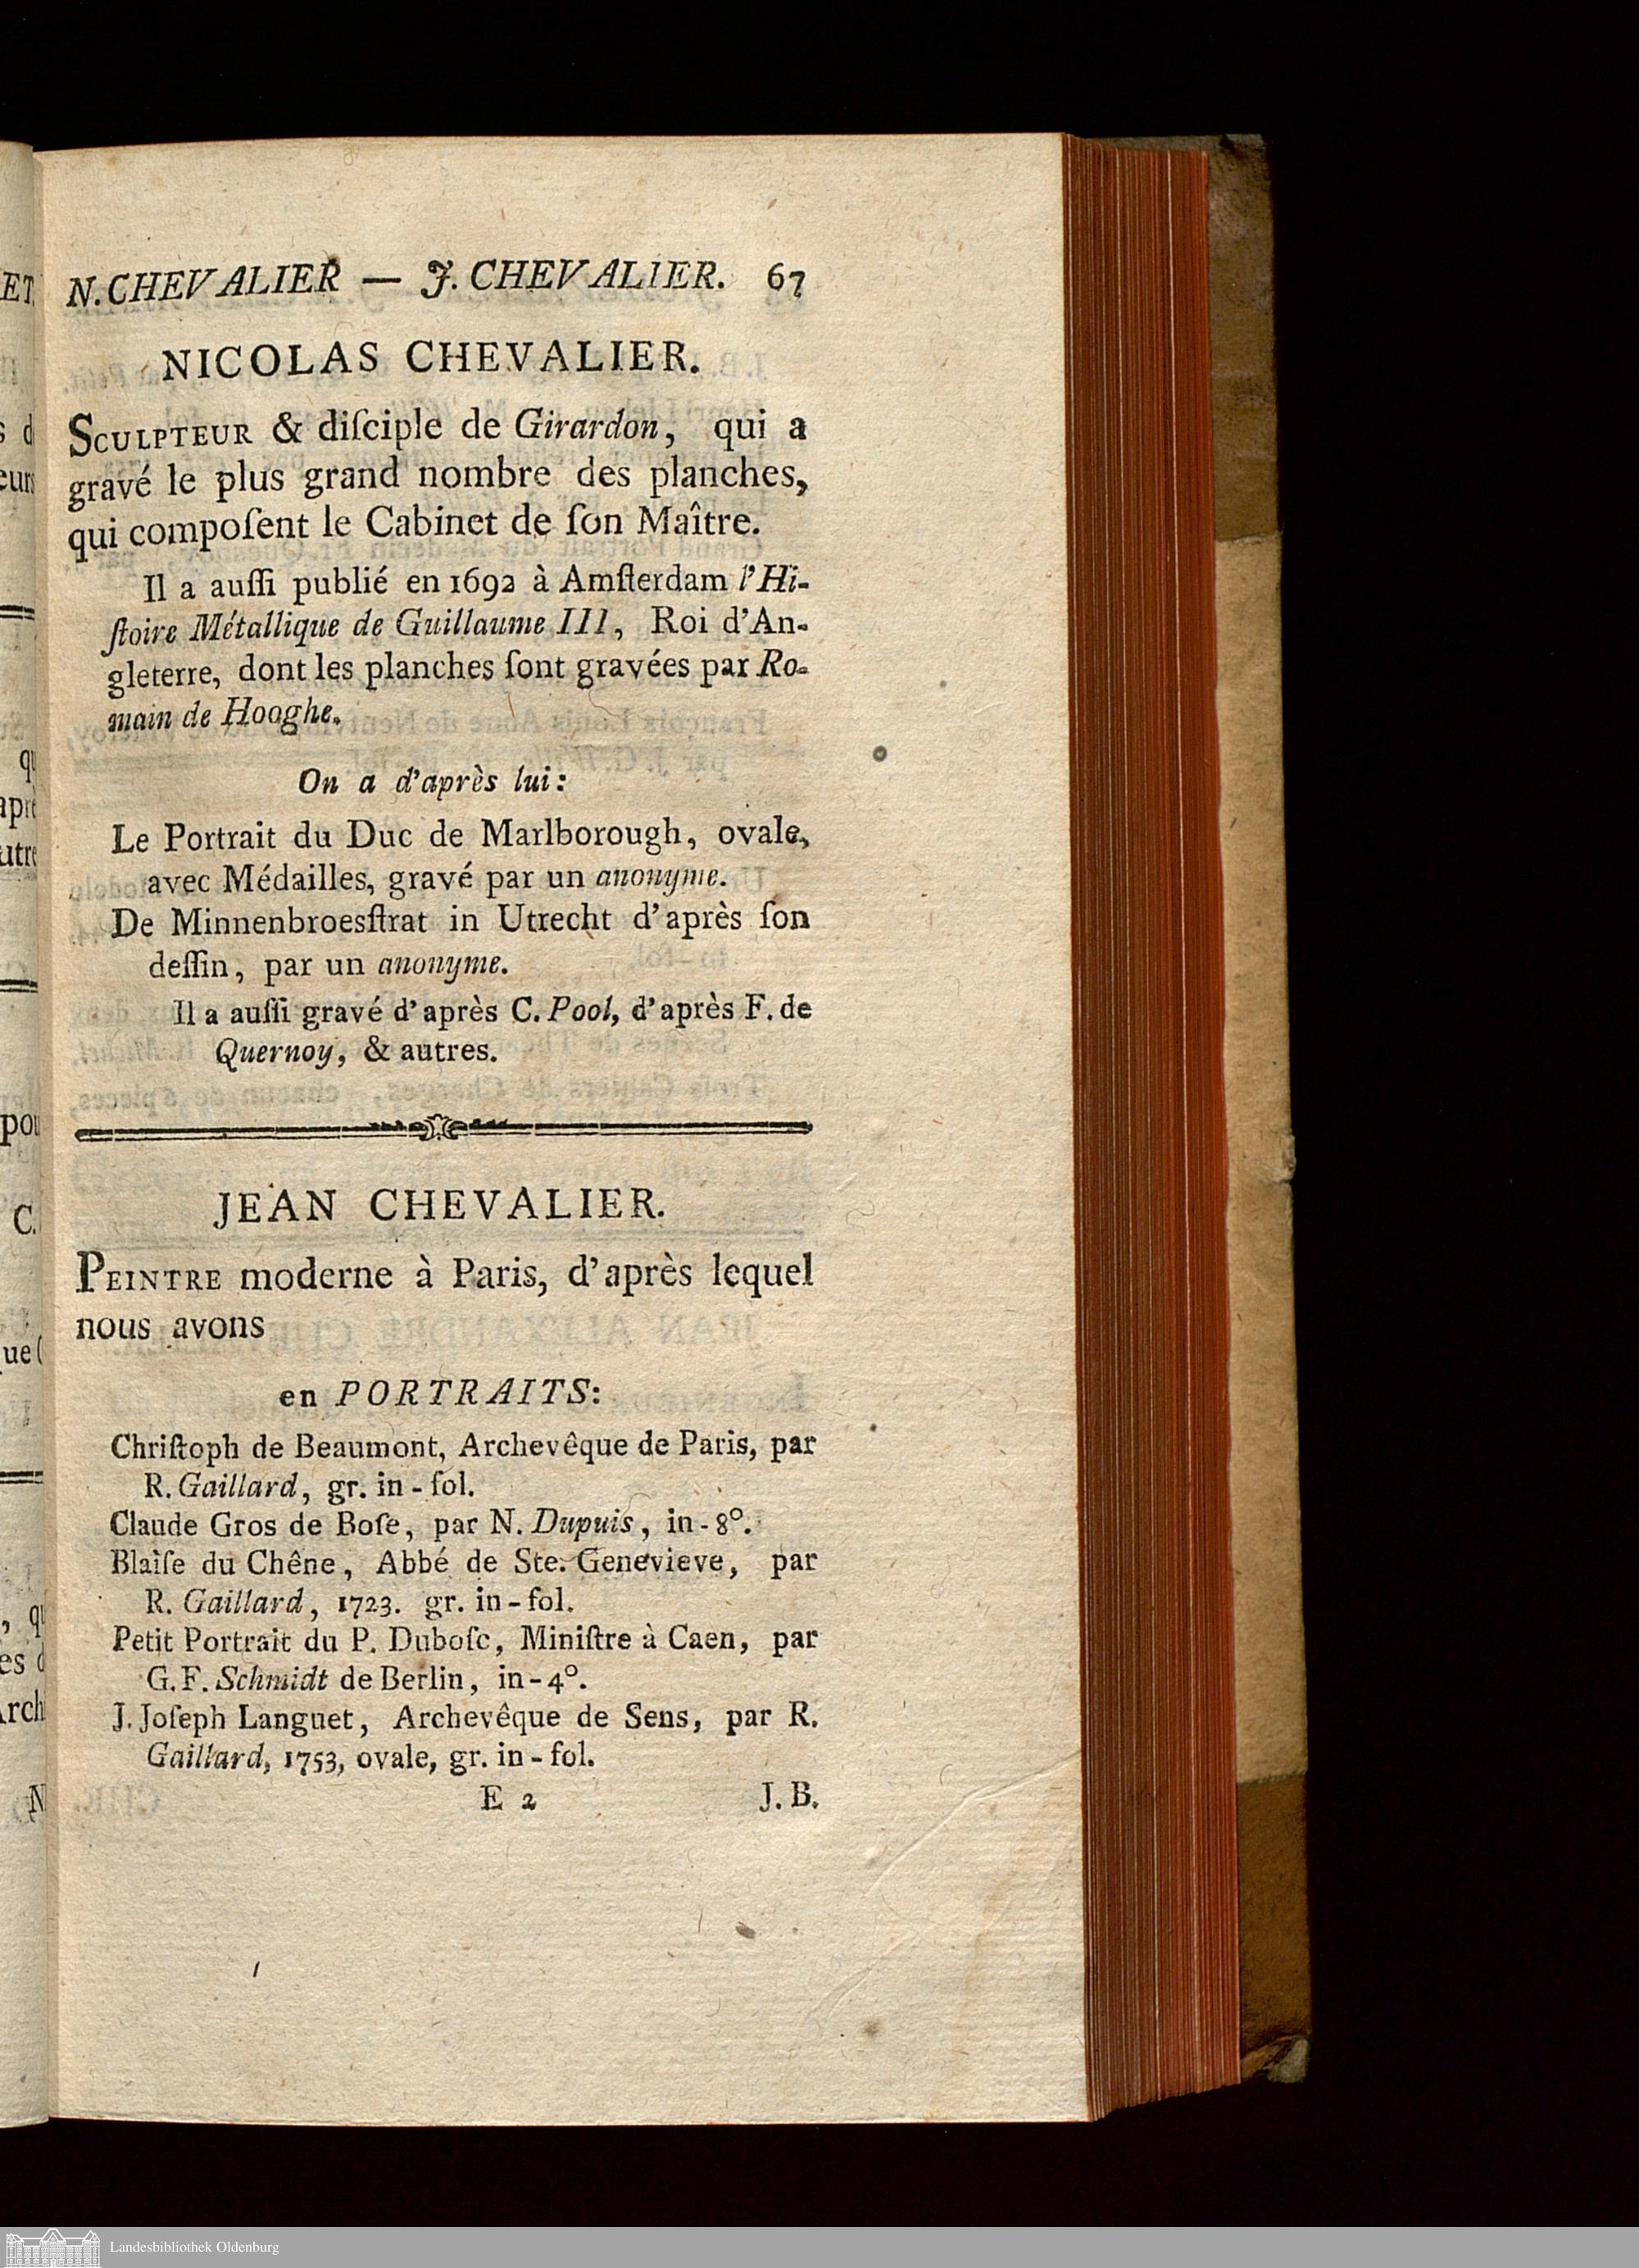 N. CHEVALIER — J. CHEVALIER. 67
NICOLAS CHEVALIER.
SCULPTEUR & diſciple de Girardon, qui a
gravé le plus grand nombre des planches,
qui compoſent le Cabinet de ſon Maître.
Il a auſſi publié en 1692 à Amſterdam l'Hi-
ſtoire Métallique de Guillaume III, Roi d'An-
gleterre, dont les planches ſont gravées par Ro-
main de Hooghe.
On a d'après lui:
Le Portrait du Duc de Marlborough, ovale,
avec Médailles, gravé par un anonyme.
De Minnenbroesſtrat in Utrecht d'après ſon
deſſin, par un anonyme.
Il a auſſi gravé d'après C. Pool, d'après F. de
Quernoy, & autres.
JEAN CHEVALIER.
PEINTRE moderne à Paris, d'après lequel
nous avons
en PORTRAITS:
Chriſtoph de Beaumont, Archevêque de Paris, par
R. Gaillard, gr. in-fol.
Claude Gros de Boſe, par N. Dupuis, in-8°.
Blaiſe du Chêne, Abbé de Ste. Genevieve, par
R. Gaillard, 1723. gr. in-fol.
Petit Portrait du P. Duboſc, Miniſtre à Caen, par
G. F. Schmidt de Berlin, in-4°.
J. Joſeph Languet, Archevêque de Sens, par R.
Gaillard, 1753, ovale, gr. in-fol.
E 2 J. B.
Landesbibliothek Oldenburg